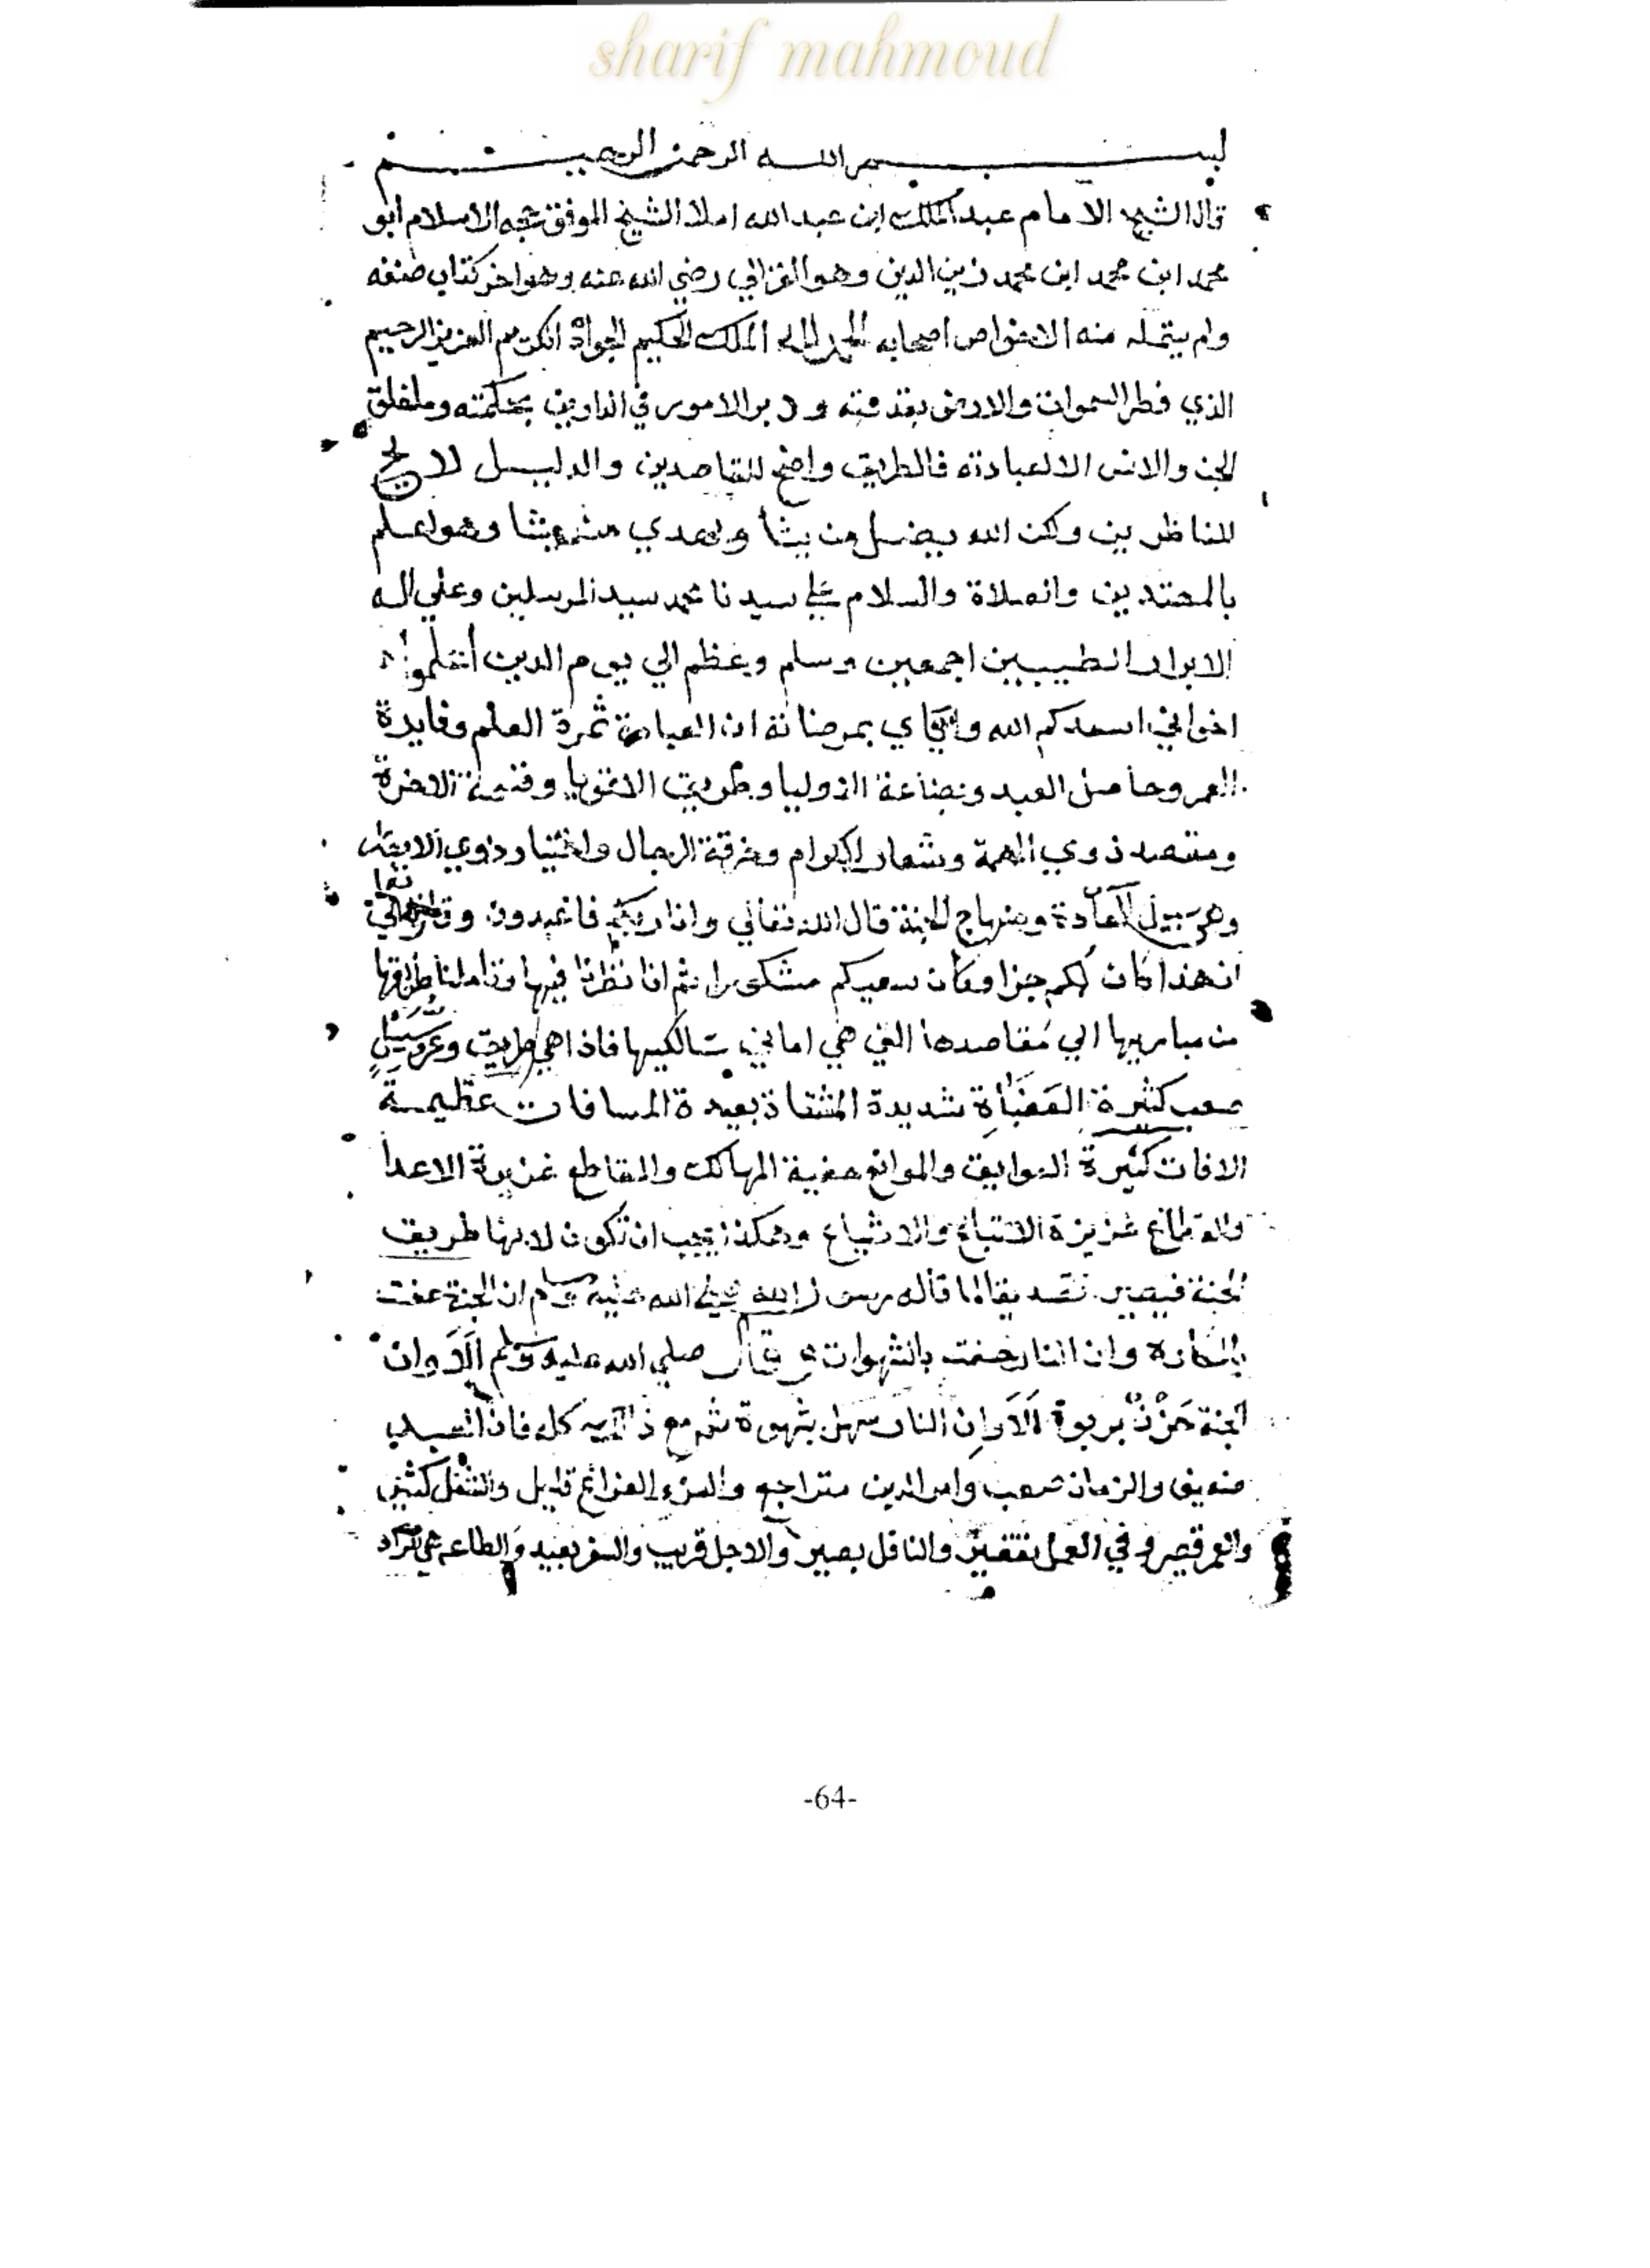 sharif mahmoud
بسم الله الرحمن الرحيم
قال الشيخ الامام عبد الملك ابن عبد الله املا الشيخ الموفق حجه الاسلام ابو
محمد ابن محمد ابن محمد زين الدين وهو الغزالي رضي الله عنه وهو اخر كتاب صنفه
ولم يتمله منه الاخواص اصحابه الحمد لله الملك الحكيم الجواد الكريم العزيز الرحيم
الذي فطر السموات والارض بقدرته ودبر الامور في الدارين بحكمته وماخلق
الجن والانس الا لعبادته فالطريق واضح للقاصدين والدليل لايح
للناظرين ولكن الله يضل من يشا ويهدي من يشا وهو اعلم
بالمهتدين والصلاة والسلام علي سيدنا محمد سيد المرسلين وعلي اله
الابرار الطيبين اجمعين وسلم وعظم الي يوم الدين اعلموا
اخواني اسعدكم الله واياي بمرضاته ان العبادة ثمرة العلم وفايدة
العمر وحاصل العبد وبضاعة الاوليا وطريق الاقويا وقسمة الاخرة
ومقصد ذوي الهمة وشعار الكرام وحرقة الرجال واختيار ذوي الابصار
وهي سبيل السعادة ومنهاج الجنة قال الله تعالي وانا ربكم فاعبدون وقال تعالي
ان هذا كان لكم جزا وكان سعيكم مشكورا ثم انا نظرنا فيها وتاملنا طريقها
من مباديها الي مقاصدها التي هي اماني سالكيها فاذا هي طريق وعر وسبيل
صعب كثيرة العقبات شديدة المشقات بعيدة المسافات عظيمة
الافات كثيرة العوايق والموانع خفية المهالك والمقاطع غزيرة الاعدا
والقطاع عزيزة الاتباع والاشياع وهكذا يجب ان تكون لانها طريق
الجنة فيصير تصديقا لما قاله رسول الله صلي الله عليه وسلم ان الجنة حفت
بالمكاره وان النار حفت بالشهوات وقال صلي الله عليه وسلم الا وان
الجنة حزن بربوة الا وان النار سهل بشهوة ثم مع ذالك كله فان العبد
ضعيف والزمان صعب وامر الدين متراجع والفراغ قليل والشغل كثير
والعمر قصير وفي العمل تقصير والناقد بصير والاجل قريب والسفر بعيد والطاعه هي الزاد
-64-